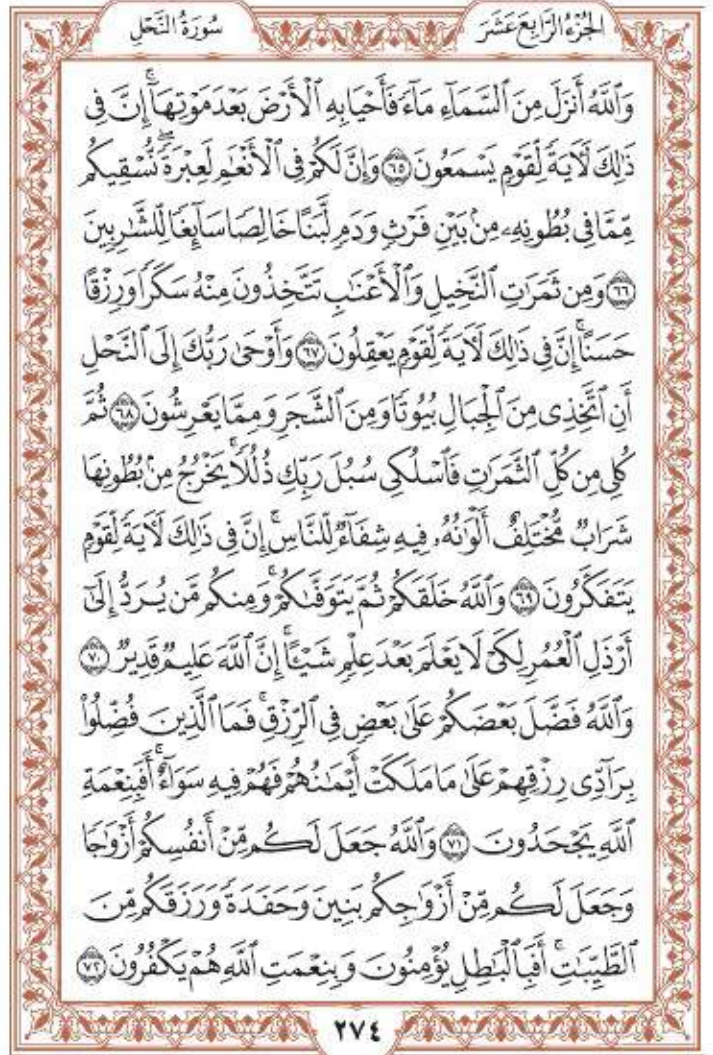 سُورَةُ النَّحْلِ
الجُزْءُ الرَّابِعَ عَشَرَ
وَٱللَّهُ أَنزَلَ مِنَ ٱلسَّمَآءِ مَآءً فَأَحْيَا بِهِ ٱلْأَرْضَ بَعْدَ مَوْتِهَآۚ إِنَّ فِى
ذَٰلِكَ لَأٓيَةً لِّقَوْمٍ يَسْمَعُونَ ٦٥ وَإِنَّ لَكُمْ فِى ٱلْأَنْعَٰمِ لَعِبْرَةًۖ نُّسْقِيكُم
مِّمَّا فِى بُطُونِهِۦ مِنۢ بَيْنِ فَرْثٍ وَدَمٍ لَّبَنًا خَالِصًا سَآئِغًا لِّلشَّٰرِبِينَ
٦٦ وَمِن ثَمَرَٰتِ ٱلنَّخِيلِ وَٱلْأَعْنَٰبِ تَتَّخِذُونَ مِنْهُ سَكَرًا وَرِزْقًا
حَسَنًاۚ إِنَّ فِى ذَٰلِكَ لَأٓيَةً لِّقَوْمٍ يَعْقِلُونَ ٦٧ وَأَوْحَىٰ رَبُّكَ إِلَى ٱلنَّحْلِ
أَنِ ٱتَّخِذِى مِنَ ٱلْجِبَالِ بُيُوتًا وَمِنَ ٱلشَّجَرِ وَمِمَّا يَعْرِشُونَ ٦٨ ثُمَّ
كُلِى مِن كُلِّ ٱلثَّمَرَٰتِ فَٱسْلُكِى سُبُلَ رَبِّكِ ذُلُلًاۚ يَخْرُجُ مِنۢ بُطُونِهَا
شَرَابٌ مُّخْتَلِفٌ أَلْوَٰنُهُۥ فِيهِ شِفَآءٌ لِّلنَّاسِۚ إِنَّ فِى ذَٰلِكَ لَأٓيَةً لِّقَوْمٍ
يَتَفَكَّرُونَ ٦٩ وَٱللَّهُ خَلَقَكُمْ ثُمَّ يَتَوَفَّىٰكُمْۚ وَمِنكُم مَّن يُرَدُّ إِلَىٰٓ
أَرْذَلِ ٱلْعُمُرِ لِكَىْ لَا يَعْلَمَ بَعْدَ عِلْمٍ شَيْـًٔاۚ إِنَّ ٱللَّهَ عَلِيمٌ قَدِيرٌ ٧٠
وَٱللَّهُ فَضَّلَ بَعْضَكُمْ عَلَىٰ بَعْضٍ فِى ٱلرِّزْقِۚ فَمَا ٱلَّذِينَ فُضِّلُوا۟
بِرَآدِّى رِزْقِهِمْ عَلَىٰ مَا مَلَكَتْ أَيْمَٰنُهُمْ فَهُمْ فِيهِ سَوَآءٌۚ أَفَبِنِعْمَةِ
ٱللَّهِ يَجْحَدُونَ ٧١ وَٱللَّهُ جَعَلَ لَكُم مِّنْ أَنفُسِكُمْ أَزْوَٰجًا
وَجَعَلَ لَكُم مِّنْ أَزْوَٰجِكُم بَنِينَ وَحَفَدَةً وَرَزَقَكُم مِّنَ
ٱلطَّيِّبَٰتِۚ أَفَبِٱلْبَٰطِلِ يُؤْمِنُونَ وَبِنِعْمَتِ ٱللَّهِ هُمْ يَكْفُرُونَ ٧٢
٢٧٤